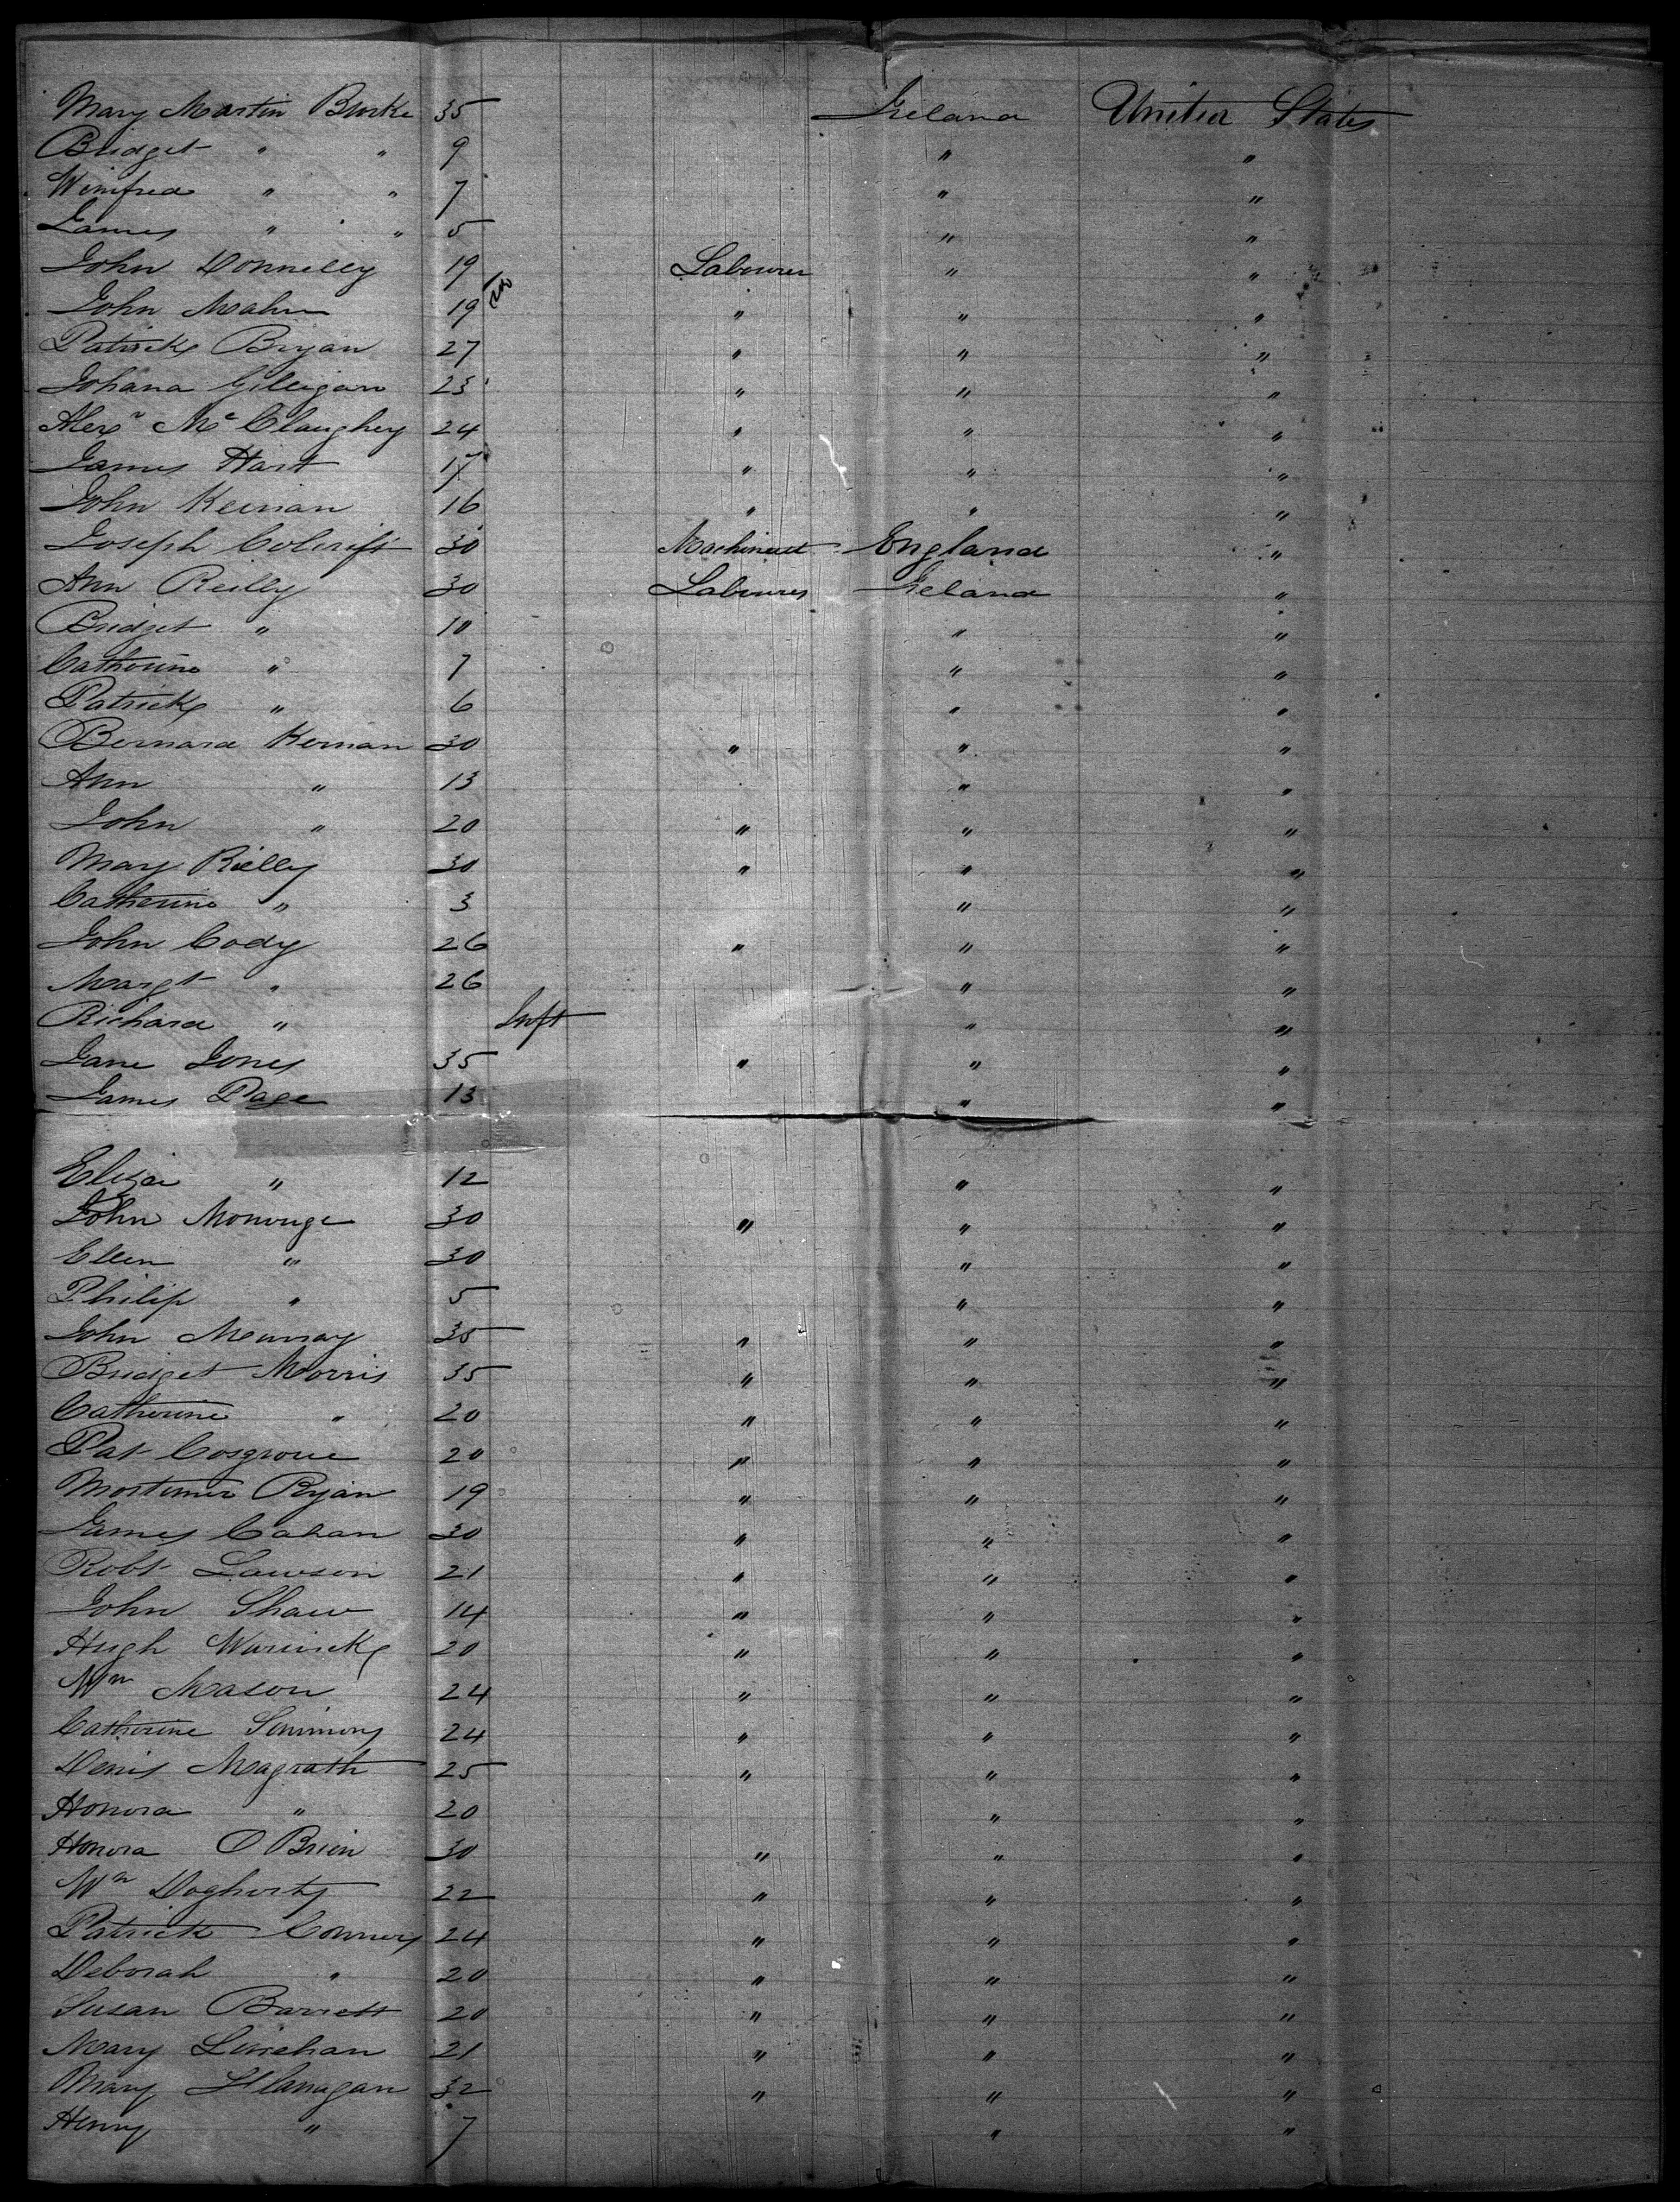 Mary Martin Burke 35 Ireland United States
Bridget " " 9 " "
Winifred " " 7 " "
James " " 5 " "
John Donnelly 19 Labourer " "
John Mahn 19 " " "
Patrick Bryan 27 " " "
Johana Gilligan 23 " " "
Alexr McClaughey 24 " " "
James Hart 17 " " "
John Keirian 16 " " "
Joseph 30 Machinest England "
Ann Reilly 30 Labourer Ireland "
Bridget " 10 " "
Catherine " 7 " "
Patrick " 6 " "
Bernard Kernan 30 " " "
Ann " 13 " "
John " 20 " " "
Mary Rielly 30 " " "
Catherine " 3 " "
John Cody 26 " " "
Margt " 26 " "
Richard " Inft " "
Jane Jones 35 " " "
James Page 13 " "
Eliza " 12 " "
John 30 " " "
Ellen " 30 " "
Philip " 5 " "
John Murray 35 " " "
Bridget Morris 35 " " "
Catherine " 20 " " "
Pat Cosgrove 20 " " "
Mortimer Ryan 19 " " "
James Cahan 30 " " "
Robt Lawson 21 " " "
John Shaw 14 " " "
Hugh Warwick 20 " " "
Wm Mason 24 " " "
Catherine Simmons 24 " " "
Denis Magrath 25 " " "
Honora " 20 " "
Honora O Brien 30 " " "
Wm Dogherty 22 " " "
Patrick Connery 24 " " "
Deborah " 20 " " "
Susan Barrett 20 " " "
Mary Linehan 21 " " "
Mary Flanagan 32 " " "
Henry " 7 " "